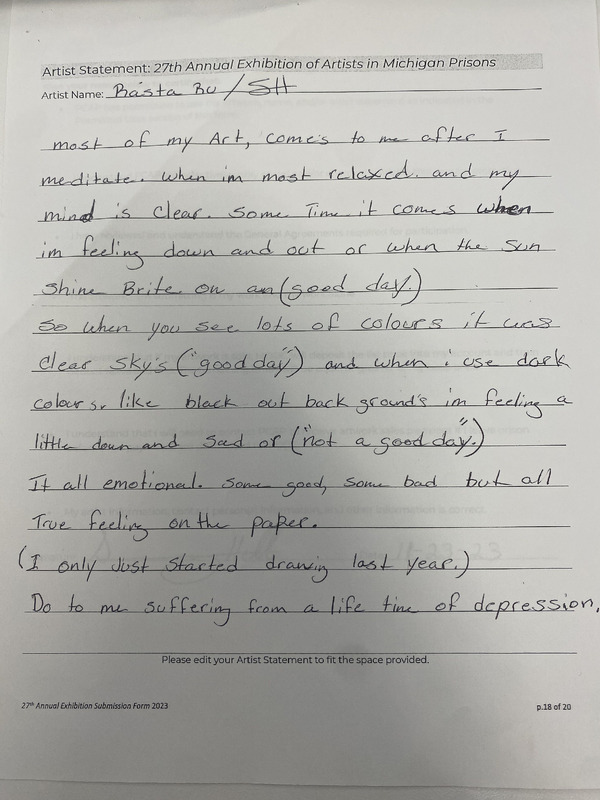 Artist Statement: 27th Annual Exhibition of Artists in Michigan Prisons
Artist Name: Rasta Bu / SH
most of my Art, comes to me after I
meditate. when im most relaxed. and my
mind is clear. some Time it comes when
im feeling down and out or when the sun
shine Brite on an (good day.)
so when you see lots of colours it was
clear sky's ("good day") and when i use dark
colours, like black out back ground's im feeling a
little down and sad or ("not a good day.")
It all emotional. some good, some bad but all
True feeling on the paper.
(I only Just started drawing last year.)
Do to me suffering from a life time of depression,
Please edit your Artist Statement to fit the space provided.
27th Annual Exhibition Submission Form 2023
p.18 of 20